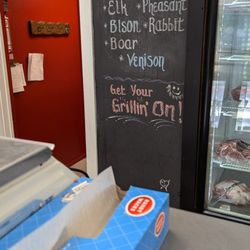 Elk + Pheasant
+ Bison + Rabbit
+ Boar
+ Venison
Get Your
Grillin' On!